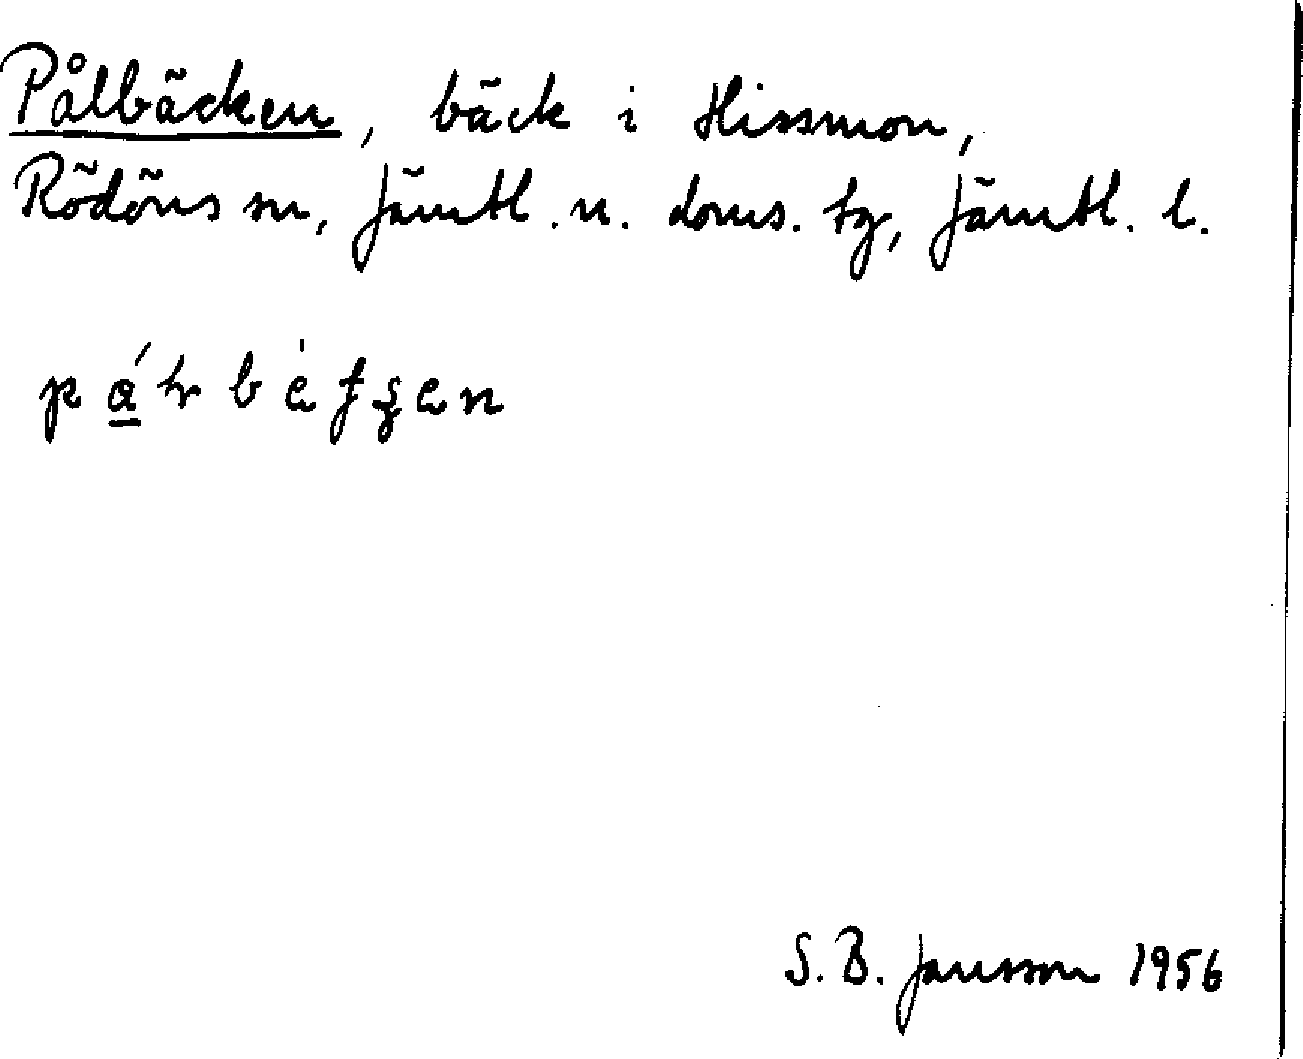 Pålbäcken, bäck i Hissmon,
Rödöns sn, Jämtl. n. doms. tg, Jämtl. l.
S. B. Jansson 1956